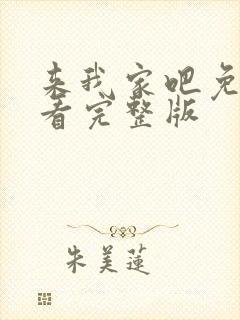 来我家吧免
看完整版
朱美莲